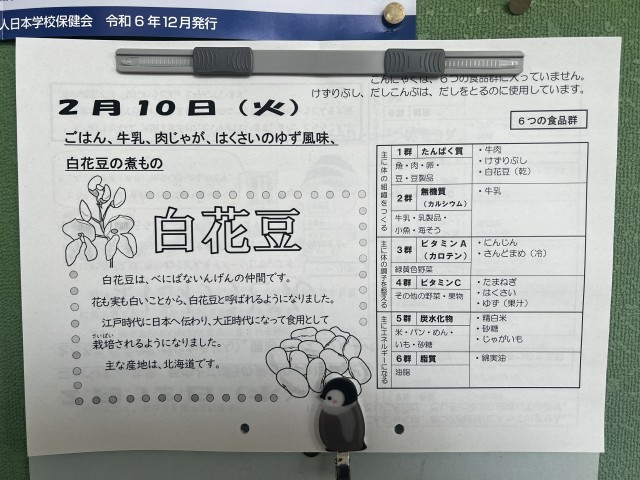 人日本学校保健会 令和6年12月発行
こんにゃくは、6つの食品群に入っていません。
けずりぶし、だしこんぶは、だしをとるのに使用しています。
2月10日（火）
ごはん、牛乳、肉じゃが、はくさいのゆず風味、
白花豆の煮もの
白花豆
白花豆は、べにばないんげんの仲間です。
花も実も白いことから、白花豆と呼ばれるようになりました。
江戸時代に日本へ伝わり、大正時代になって食用として
さいばい
栽培されるようになりました。
主な産地は、北海道です。
6つの食品群
主に体の組織をつくる
1群 たんぱく質
魚・肉・卵・
豆・豆製品
・牛肉
・けずりぶし
・白花豆（乾）
2群 無機質
（カルシウム）
牛乳・乳製品・
小魚・海そう
・牛乳
主に体の調子を整える
3群 ビタミンA
（カロテン）
緑黄色野菜
・にんじん
・さんどまめ（冷）
4群 ビタミンC
その他の野菜・果物
・たまねぎ
・はくさい
・ゆず（果汁）
主にエネルギーになる
5群 炭水化物
米・パン・めん・
いも・砂糖
・精白米
・砂糖
・じゃがいも
6群 脂質
油脂
・綿実油